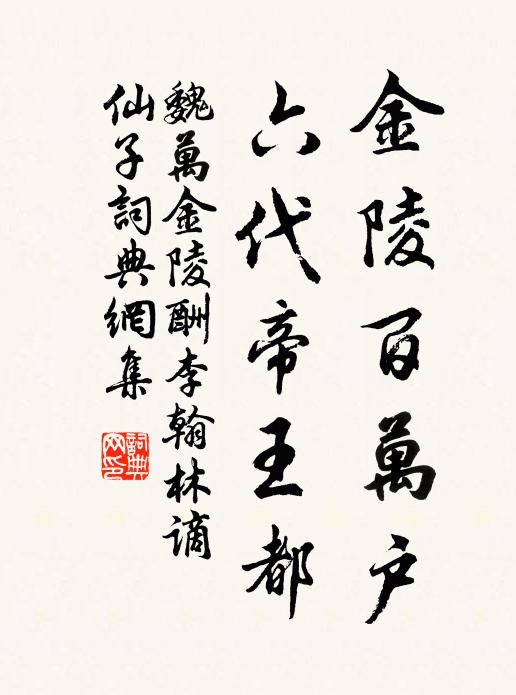 金陵百萬户
六代帝王都
魏萬金陵酬李翰林谪
仙子詞典網集
詞典网印